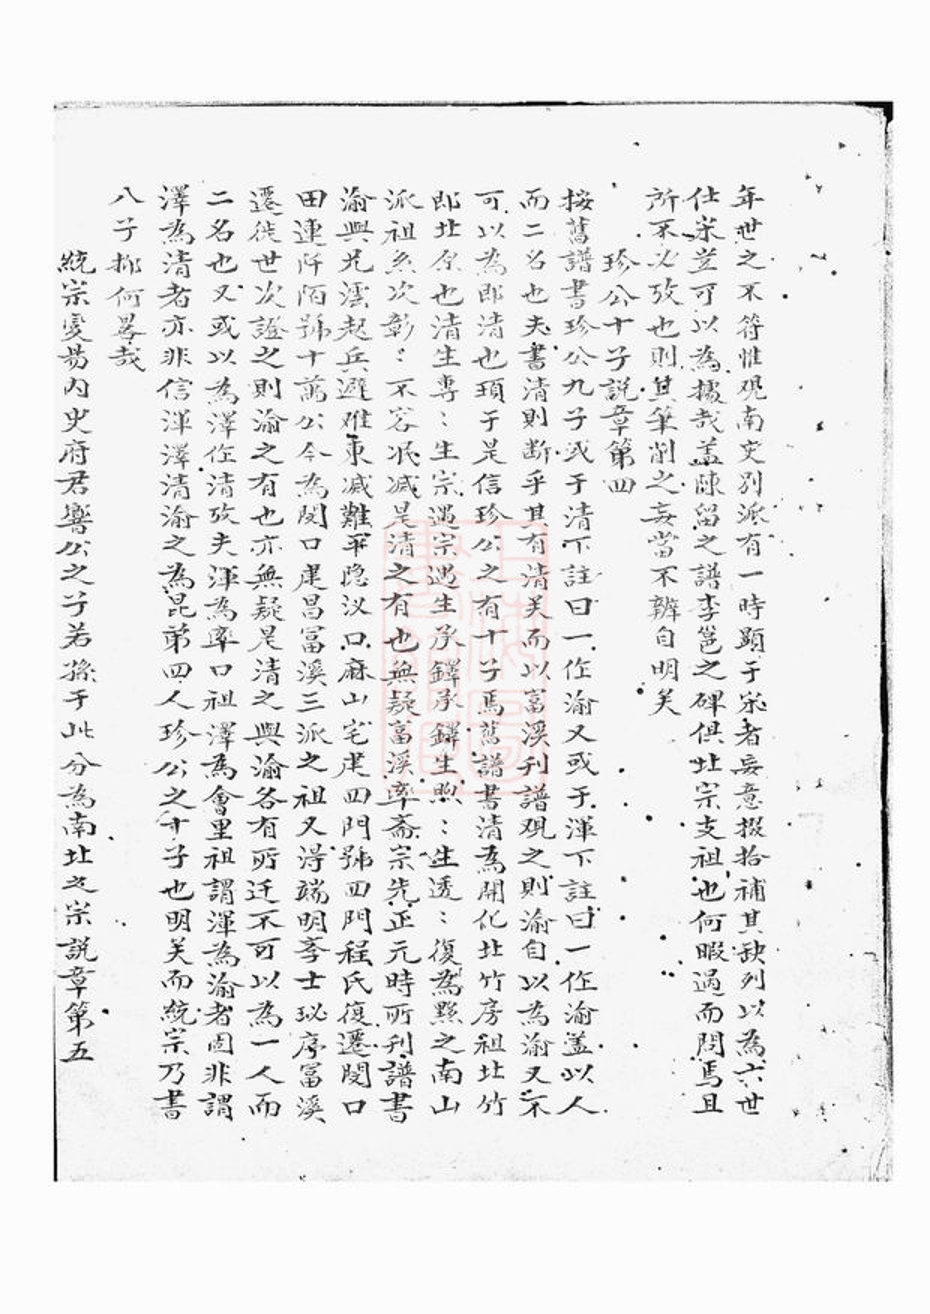 年世之不符惟覌南支别派有一時顕于宋者妄意掇拾補其缺列以為六世
仕宋豈可以為據哉盖陳留之譜李邕之碑俱北宗支祖也何暇過而問焉且
所不必攷也則其筆削之妄當不辨自明矣
珍公十子説章第四
按舊譜書珍公九子或于清下註曰一作渝又或于渾下註曰一作渝盖以人
而二名也夫書清則断乎其有清矣而以富溪刋譜覌之則渝自以為渝又不
可以為即清也頊于是信珍公之有十子焉舊譜書清為開化北竹房祖北竹
即北原也清生専〻生宗遇宗遇生承鐸承鐸生煦〻生透〻復為黟之南山
派祖糸次彰〻不容泯滅是清之有也無疑富溪率斋宗先正元時所刋譜書
渝與兄澐起兵避难東减難平隐汊口麻山宅建四門號四門程氏復遷閔口
田連阡陌號十萬公今為閔口建昌冨溪三派之祖又淂端明李士珌序富溪
遷徙世次證之則渝之有也亦無疑是清之與渝各有所迁不可以為一人而
二名也又或以為澤作清攷夫渾為率口祖澤為會里祖謂渾為渝者固非謂
澤為清者亦非信渾澤清渝之為昆弟四人珍公之十子也明矣而統宗乃書
八子抑何畧哉
統宗变昜内史府君嚮公之子若孫于此分為南北之宗説章第五